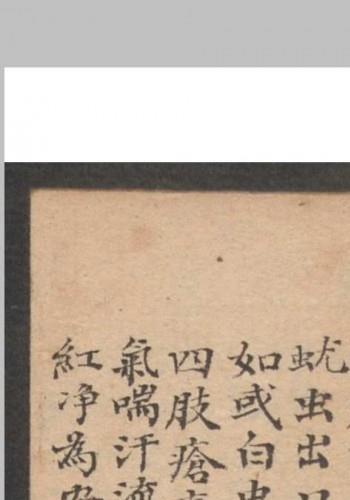 蚘虫出
如或白虫
四肢瘡
氣喘汗流
紅净為